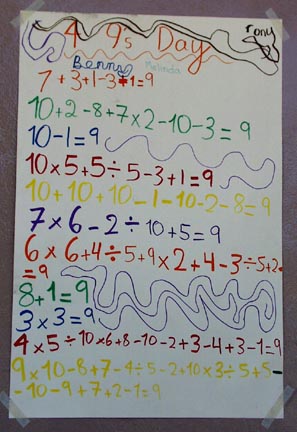 4 9s Day
Tony
Benny Melinda
7+3+1-3+1=9
10+2-8+7×2-10-3=9
10-1=9
10×5+5÷5-3+1=9
10+10+10-1-10-2-8=9
7×6-2÷10+5=9
6×6+4÷5+9×2+4-3÷5+2
=9
8+1=9
3×3=9
4×5÷10×6+8-10-2+3-4+3-1=9
9×10-8+7-4÷5-2+10×3÷5+5-
-10-9+7+2-1=9